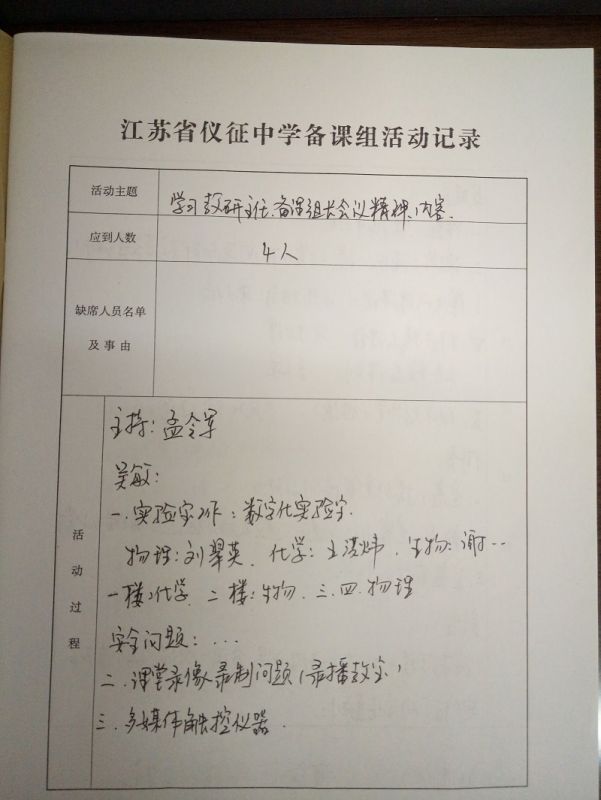 江苏省仪征中学备课组活动记录
活动主题
学习教研主任、备课组长会议精神、内容.
应到人数
4人
缺席人员名单
及事由
活动过程
主持：孟令军
吴敏：
一.实验室工作：数字化实验室.
物理：刘翠英、化学：王洪炜、生物：谢··
一楼：化学、二楼：生物、三.四.物理
安全问题：...
二.课堂录像、录制问题（录播教室）
三.多媒体触控仪器.